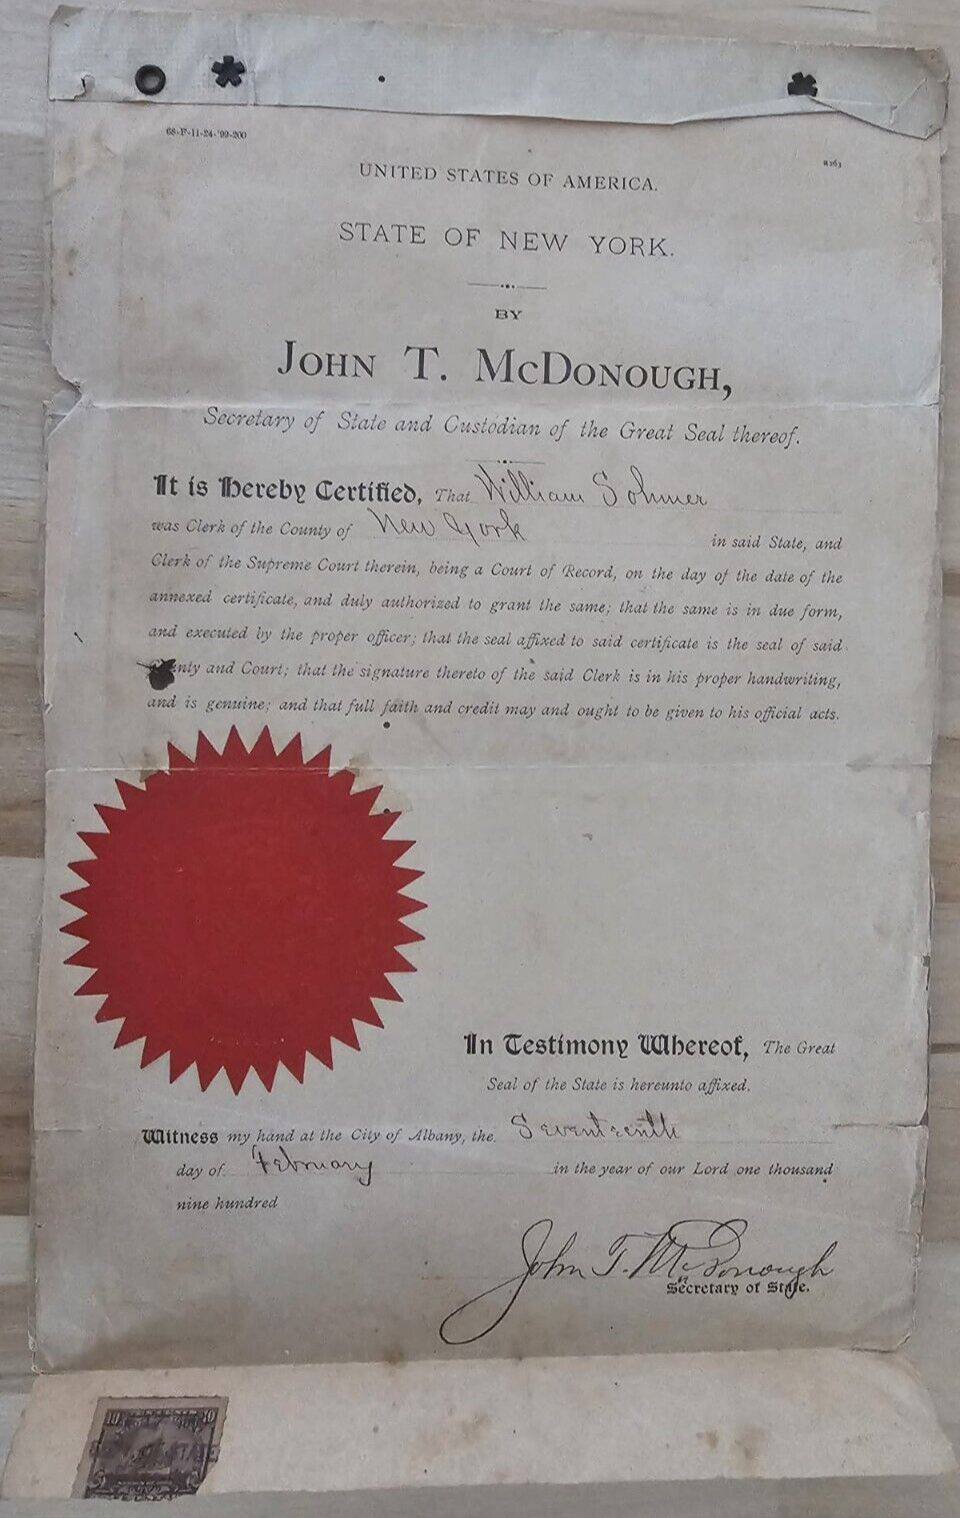 68-P-11-24-'99-200
UNITED STATES OF AMERICA.
STATE OF NEW YORK.
BY
JOHN T. MCDONOUGH,
Secretary of State and Custodian of the Great Seal thereof.
It is Hereby Certified, That William Sohmer
was Clerk of the County of New York in said State, and
Clerk of the Supreme Court therein, being a Court of Record, on the day of the date of the
annexed certificate, and duly authorized to grant the same; that the same is in due form,
and executed by the proper officer; that the seal affixed to said certificate is the seal of said
County and Court; that the signature thereto of the said Clerk is in his proper handwriting,
and is genuine; and that full faith and credit may and ought to be given to his official acts.
In Testimony Whereof, The Great
Seal of the State is hereunto affixed.
Witness my hand at the City of Albany, the Seventeenth
day of February in the year of our Lord one thousand
nine hundred
John T. McDonough
Secretary of State.
10 10